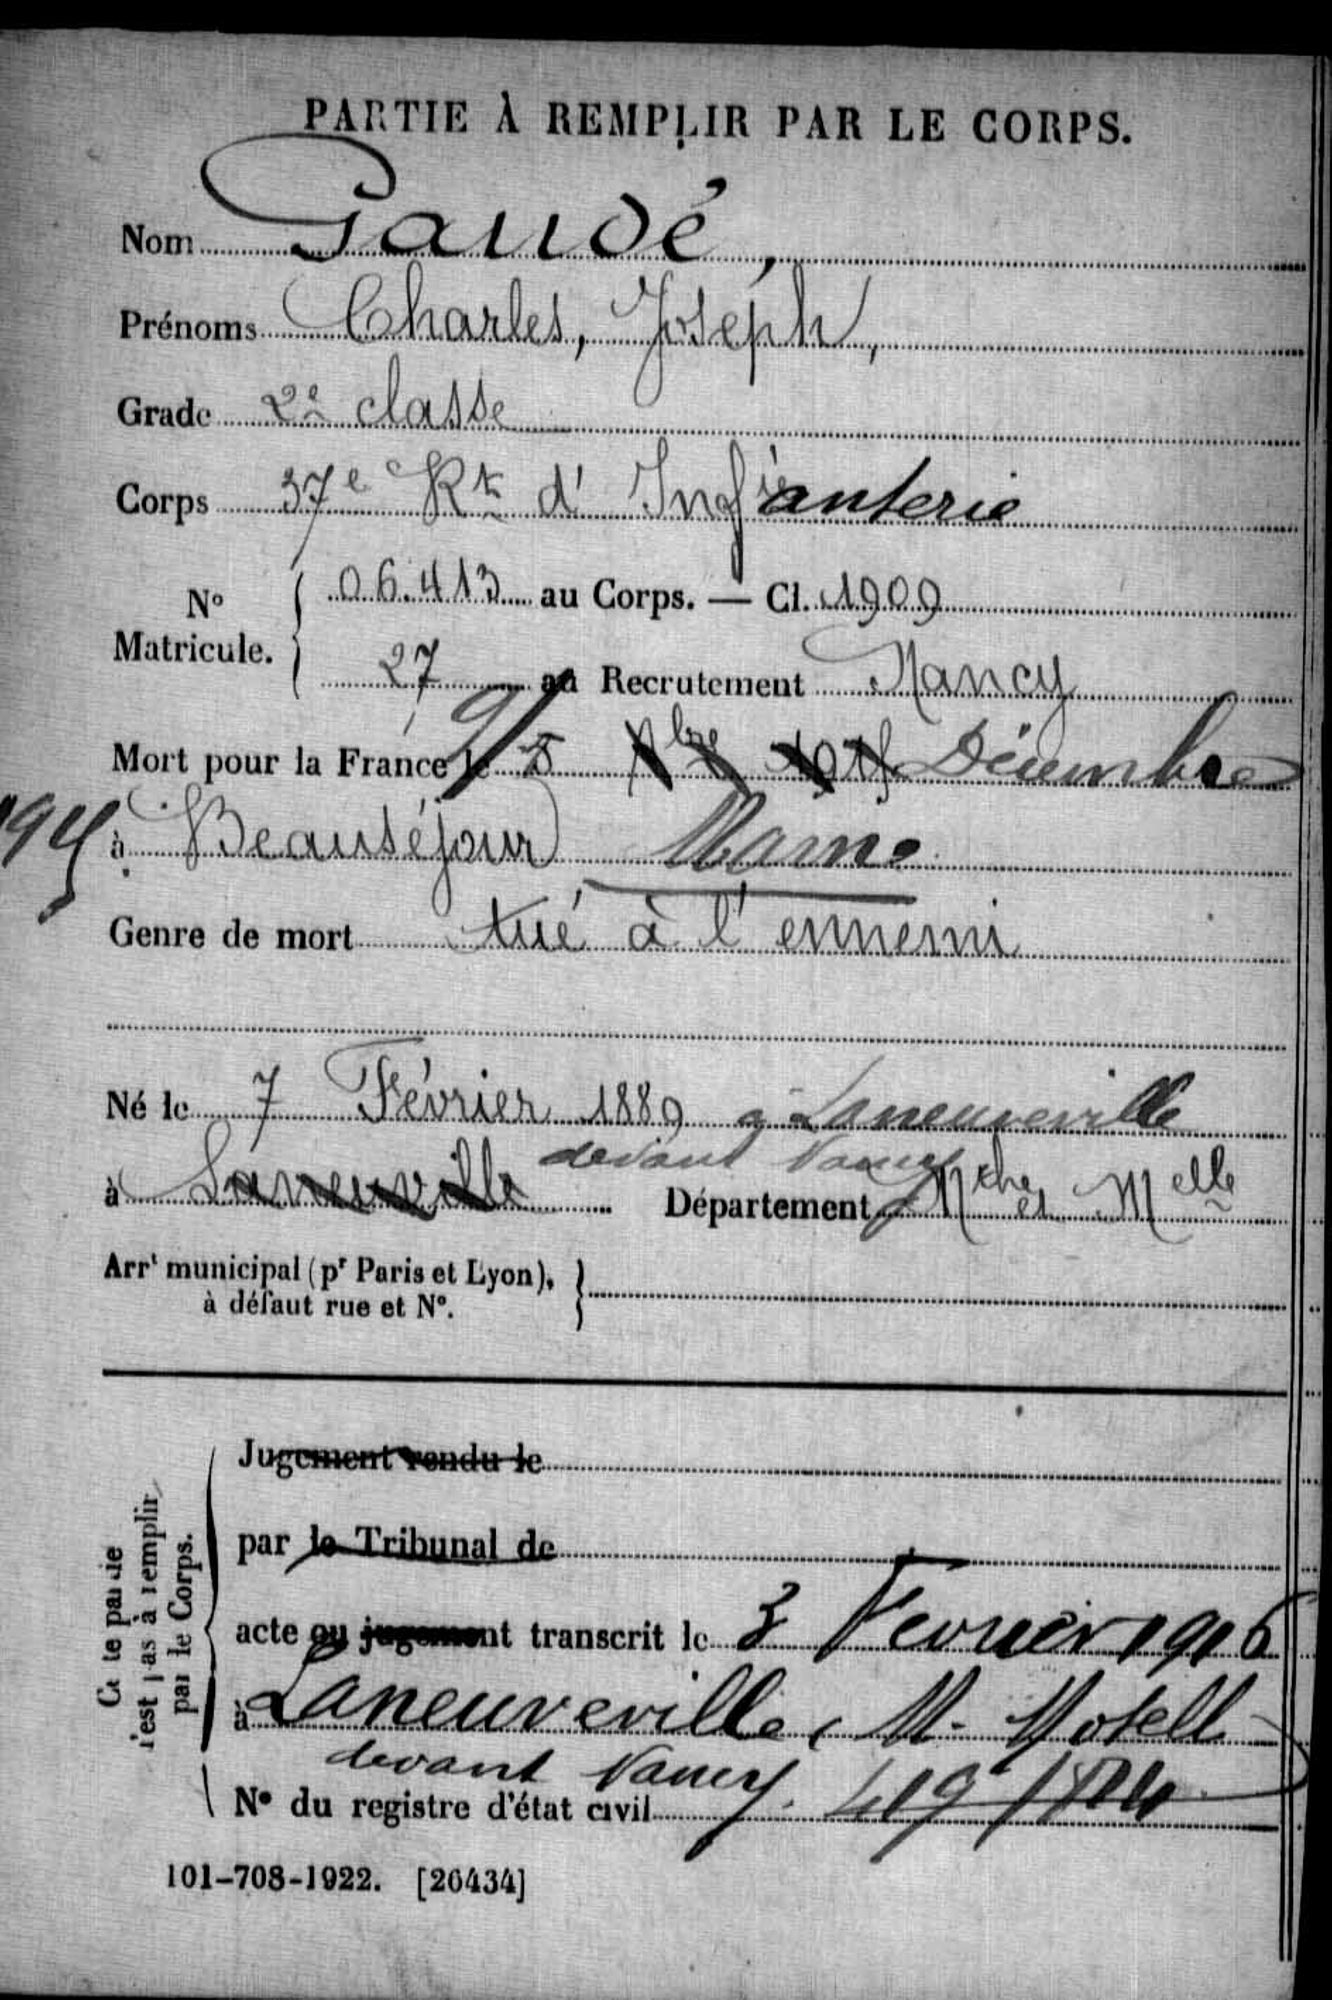 PARTIE À REMPLIR PAR LE CORPS.
Nom Gaudé,
Prénoms Charles, Joseph,
Grade 2e classe
Corps 37e Rt d' Infanterie
No Matricule. { 06.413 au Corps. — Cl. 1909
27 au Recrutement Nancy
Mort pour la France le 9 Décembre
1915 à Beauséjour Marne
Genre de mort tué à l'ennemi
Né le 7 Février 1889 à Laneuveville
devant Nancy
à Laneuville Département Mthe et Melle
Arrt municipal (pr Paris et Lyon),
à défaut rue et No.
Jugement rendu le
par le Tribunal de
acte ou jugement transcrit le 3 Février 1916
à Laneuveville, M. Mosell
devant Nancy.
No du registre d'état civil
Cette partie
n'est pas à remplir
par le Corps.
101-708-1922. [26434]